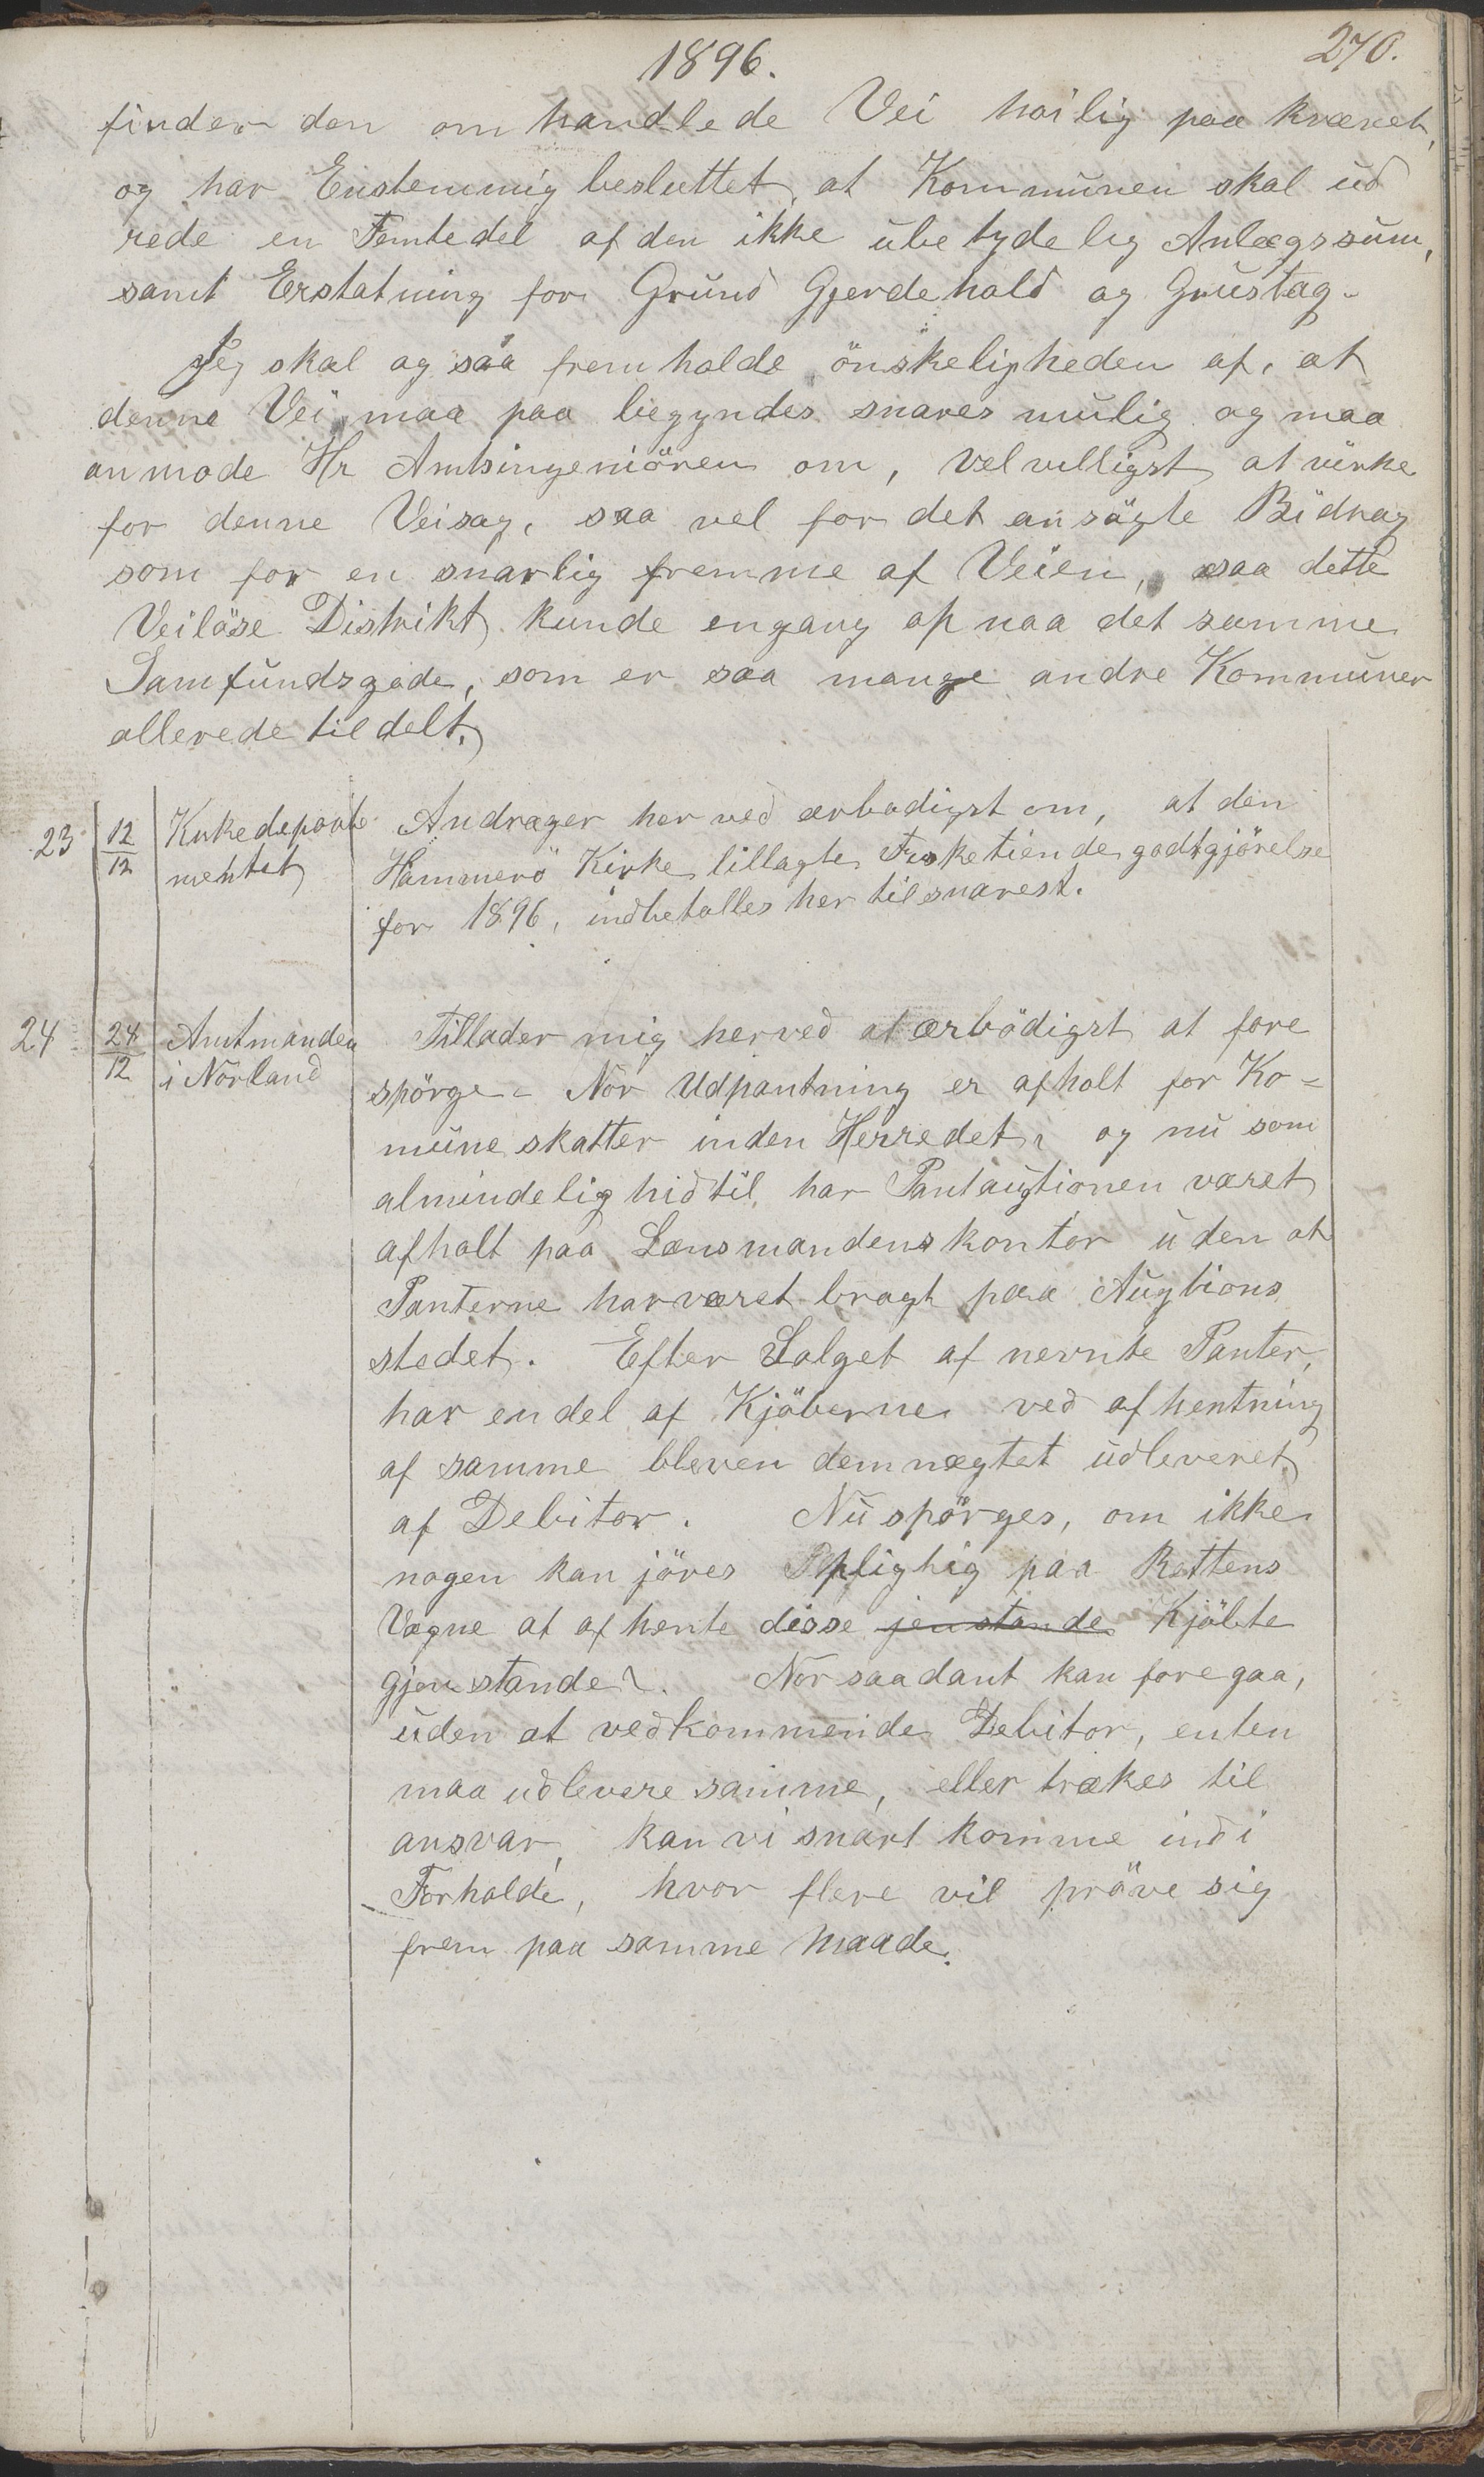 1896.
270.
finder den omhandlede Vei höilig paa krævet,
og har Enstemmig besluttet, at Kommunen skal ud
rede en Femtedel af den ikke ubetydelig Anlægssum,
samt Erstatning for Grund Gjerdehold og Grustag.
Jeg skal og saa fremholde önskeligheden af, at
denne Vei maa paa begyndes snares mulig og maa
anmode Hr Amtsingeniören om, velvilligst at virke
for denne Veisag, saa vel for det ansögte Bidrag
som for en snarlig fremme af Veien, saa dette
Veilöse Distrikt kunde engang opnaa det samme
Samfundsgode, som er saa mange andre Kommuner
allerede tildelt.
23 12/12 Kirkedeparte
mentet
Andrager herved ærbødigst om, at den
Hammerö Kirke tillagte Fisketiende godtgjörelse
for 1896, indbetalles her til snarest.
24 24/12 Amtmanden
i Norland
Tillader mig herved at ærbödigst at fore
spörge - Nör Udpantning er afholt for Ko=
mune skatter inden Herredet, og nu som
almindelig hidtil har Pantaugtionen været
afholt paa Lensmandens kontor uden at
Panterne har været bragt paa Augtions
stedet. Efter Salget af nevnte Panter,
har en del af Kjöberne ved afhentning
af samme bleven dem nægtet udleveret
af Debitor. Nu spörges, om ikke
nogen kan jöres Pligtig paa Rettens
Vegne at afhente disse jenstande Kjöbte
gjenstande?. Nör saadant kan foregaa,
uden at vedkommende Debitor, enten
maa udlevere samme, eller trækes til
ansvar, kan vi snart komme ind i
Forholde, hvor flere vil pröve sig
frem paa samme Maade.